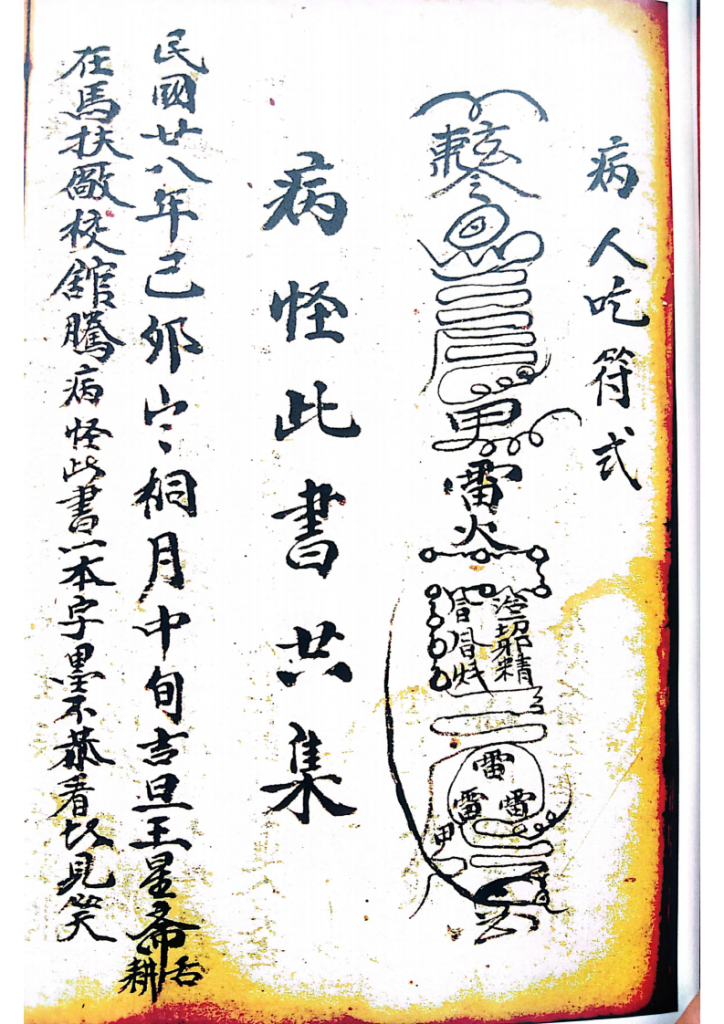 病人吃符式
玄東令
男
雷火
治切邪精
雷
雷雷
甲
病怪此書共集
民國廿八年己卯岁桐月中旬吉旦王星齋舌耕
在馬扶廠校館騰病怪此書一本字墨不恭看切見笑